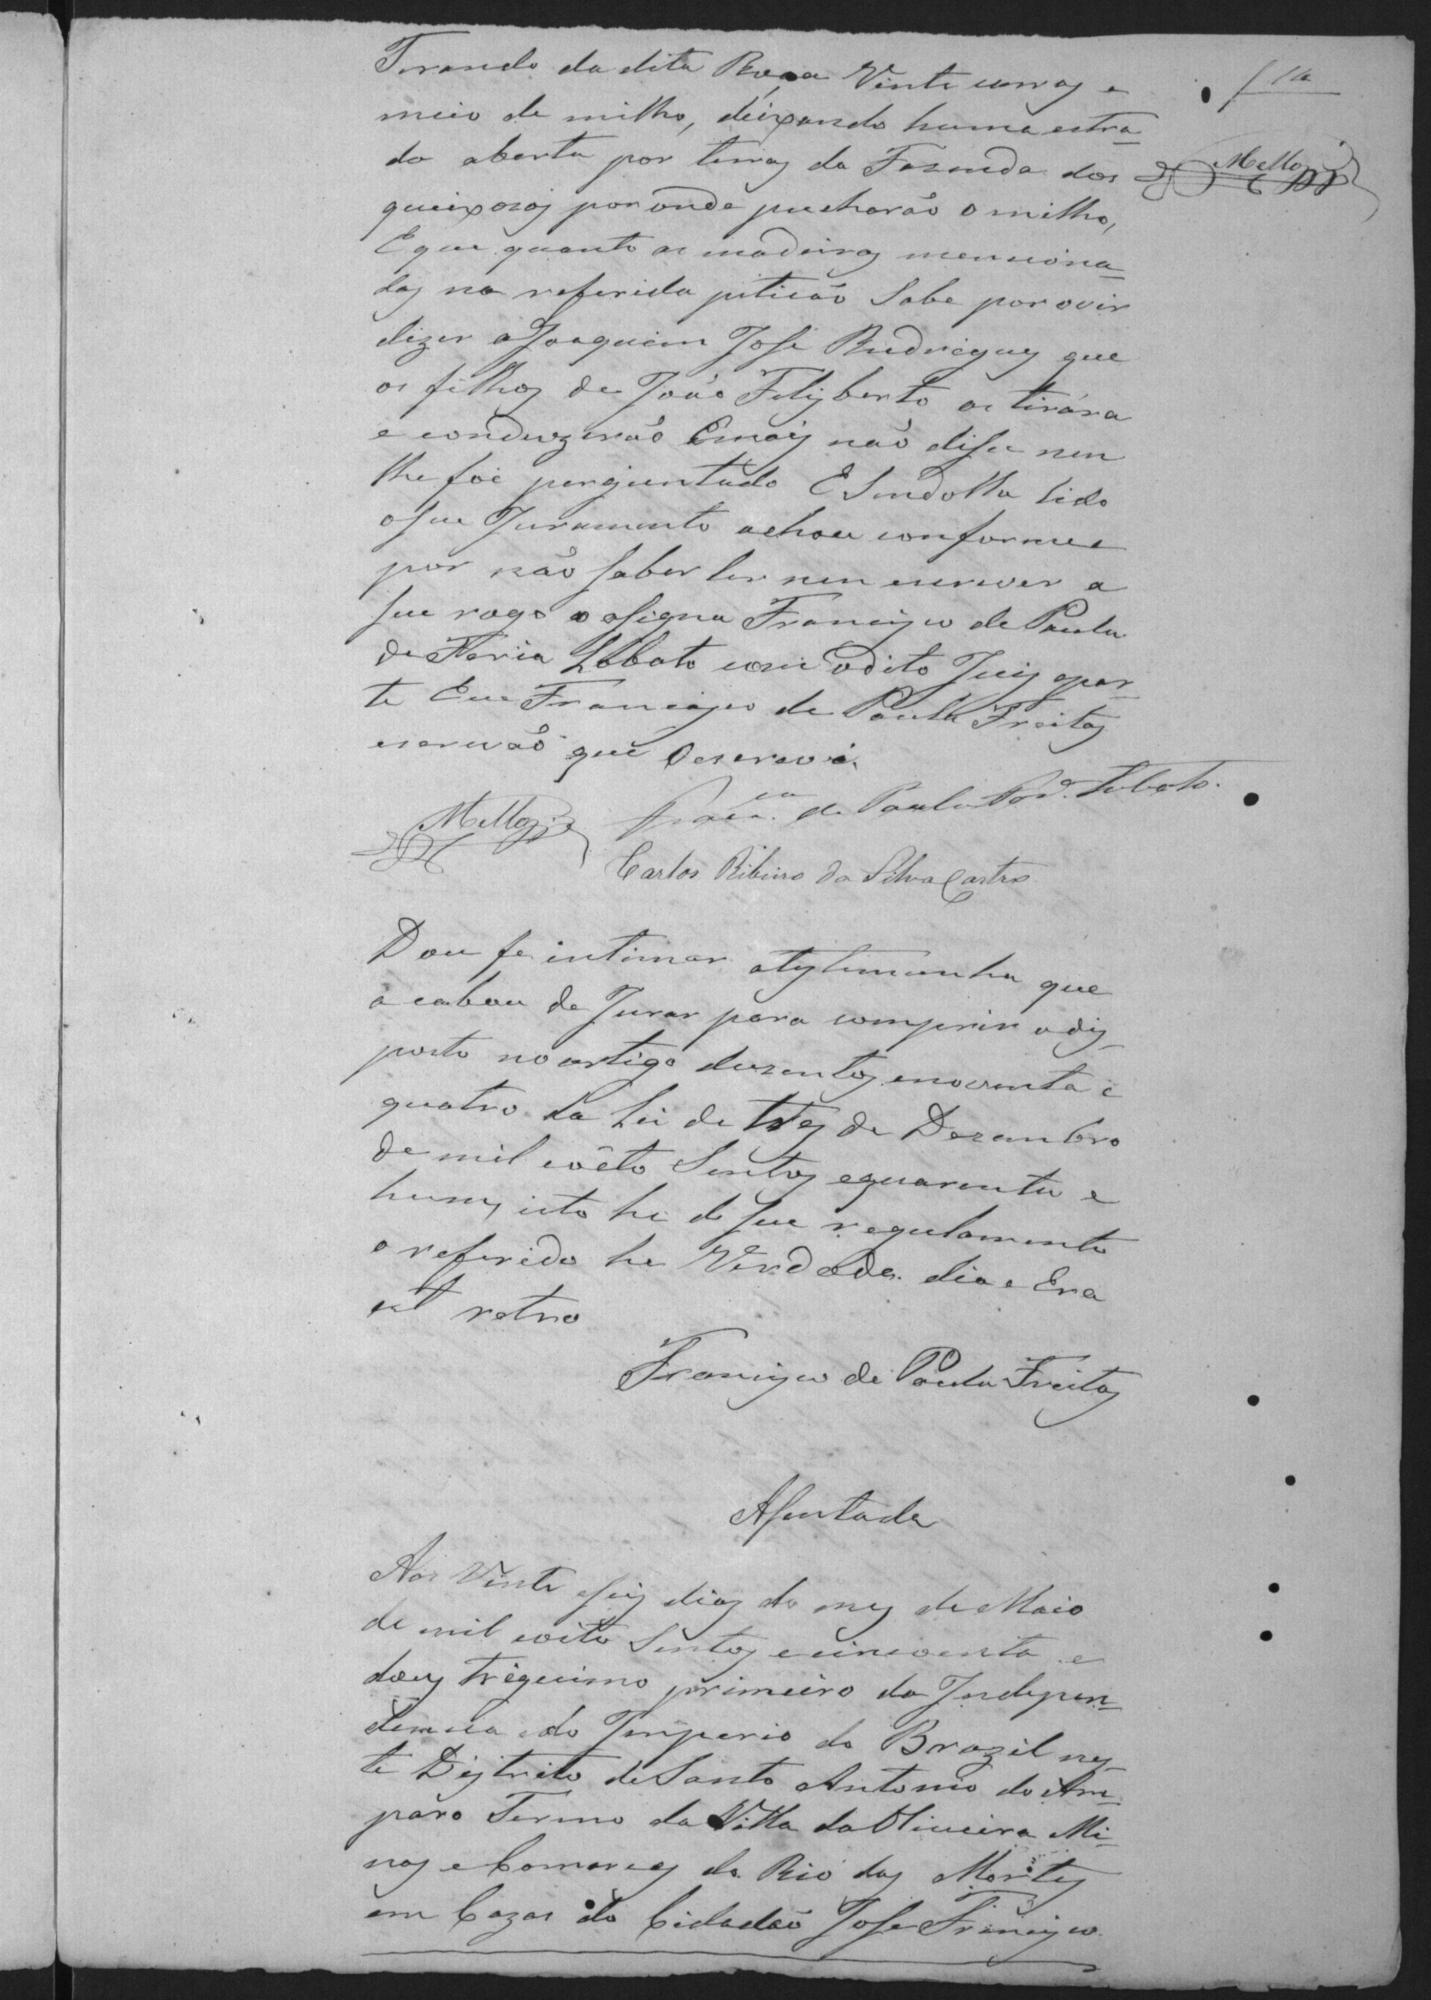 f 14
Mello
Tirando da dita Roça Vinte carros e
meio de milho, deixando huma estra-
da aberta por terras da Fazenda dos
queixosos por onde pucharão o milho,
E que quanto as madeiras menciona-
das na referida pitição Sabe por ouvir
dizer a Joaquim José Rudrigues que
os filhos de João Felisberto as tirára
e conduzirão E mais não disse nem
lhe foi perguntado E Sendolhe lido
o seu Juramento achou conforme e
por não saber ler nem escrever a
seu rogo a assigna Francisco de Paula
de Faria Lobato com o dito Juis e par-
te Eu Francisco de Paula Freitas
escrivão que o escrevi.
Mello
Franc.co de Paula Lobato.
Carlos Ribeiro da Silva Castro
Dou fe intimar a testemunha que
acabou de Jurar para comprir o dis-
posto no artigo duzentos e noventa e
quatro da Lei de tres de Dezembro
de mil e oito Sentos e quarenta e
hum, isto he do seu regulamento
o referido he Verdade. dia e Era
ut retro
Francisco de Paula Freitas
Assentada
Aos Vinte e seis dias do mes de Maio
de mil e oito Sentos e cincoenta e
dous trigecimo primeiro da Indepen-
dencia e do Imperio do Brazil nes-
te Destrito de Santo Antonio do Am-
paro Termo da Villa da Oliveira Mi-
nas e Comarca do Rio das Mortes
em Cazas do Cidadão José Francisco